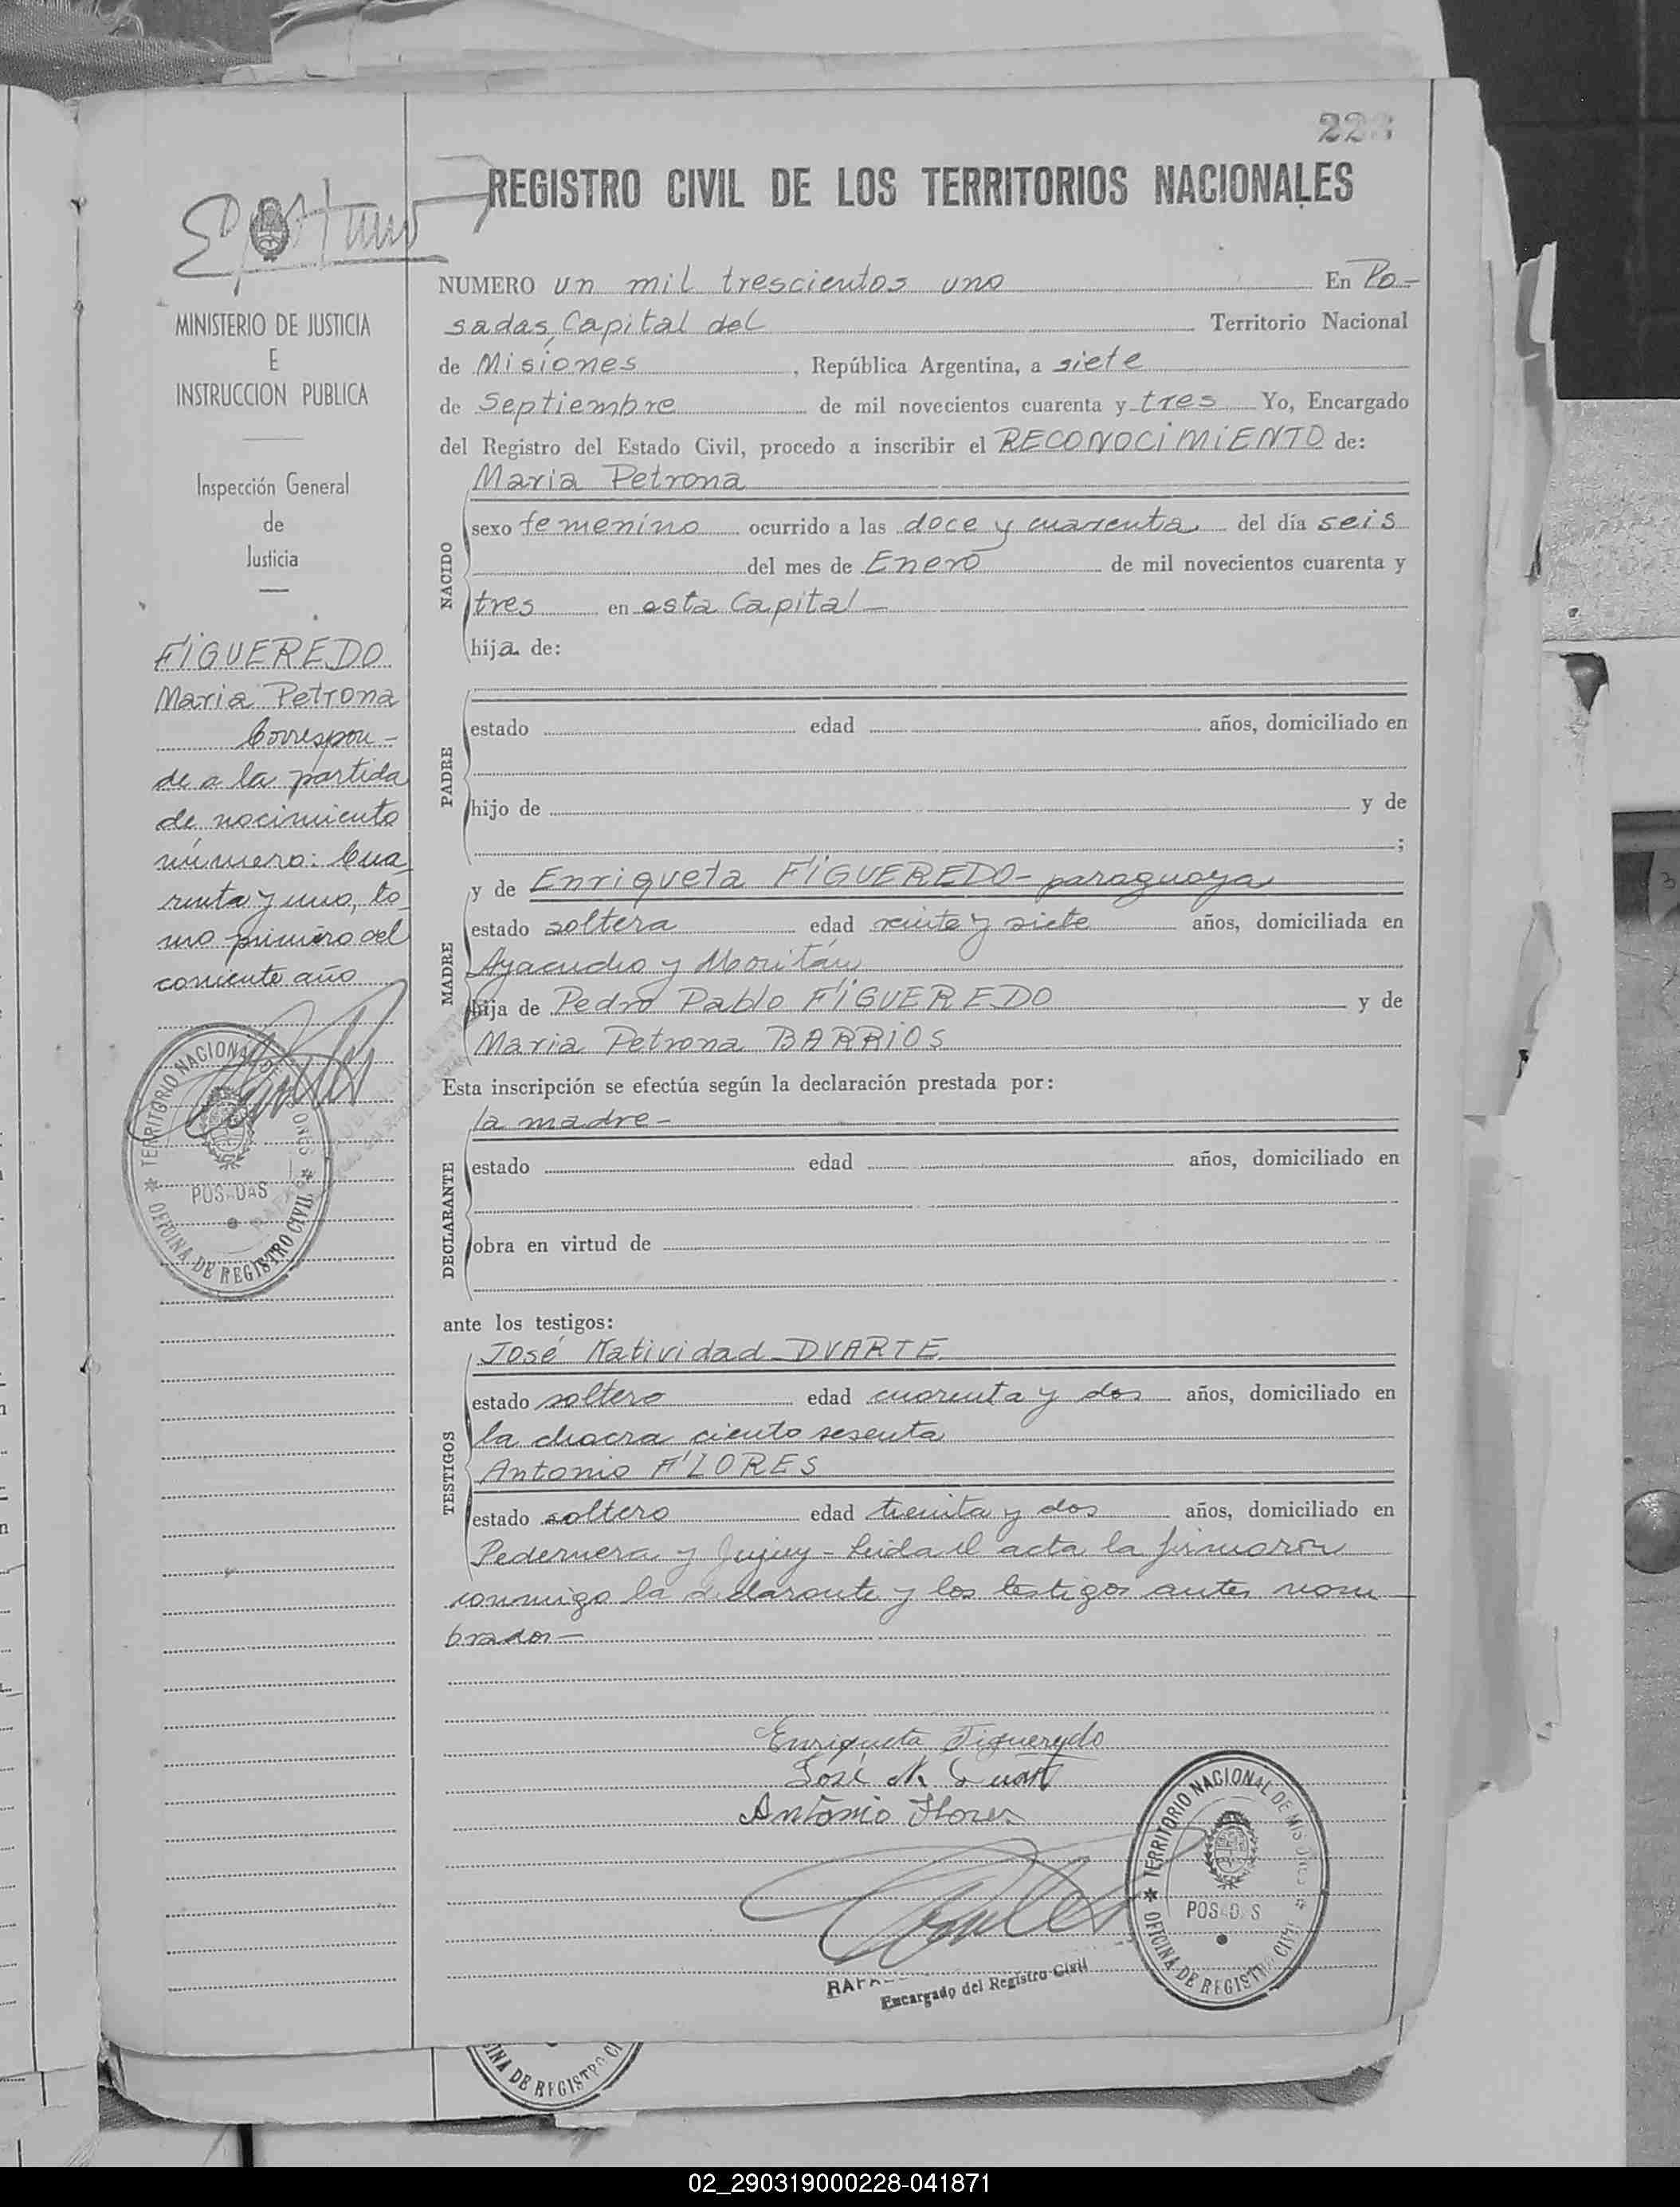 REGISTRO CIVIL DE LOS TERRITORIOS NACIONALES
MINISTERIO DE JUSTICIA
E
INSTRUCCION PUBLICA
Inspección General
de
Justicia
FIGUEREDO
Maria Petrona
Correspon-
de a la partida
de nacimiento
número: Cua
renta y uno, to
mo primero del
corriente año
TERRITORIO NACIONAL DE
POSADAS
OFICINA DE REGISTRO CIVIL
NUMERO un mil trescientos uno En Po-
sadas, Capital del Territorio Nacional
de Misiones, República Argentina, a siete
de Septiembre de mil novecientos cuarenta y tres Yo, Encargado
del Registro del Estado Civil, procedo a inscribir el RECONOCIMIENTO de:
NACIDO
Maria Petrona
sexo femenino ocurrido a las doce y cuarenta del día seis
del mes de Enero de mil novecientos cuarenta y
tres en esta Capital-
hija de:
PADRE
estado edad años, domiciliado en
hijo de y de
;
MADRE
y de Enriqueta FIGUEREDO- paraguaya
estado soltera edad veinte y siete años, domiciliada en
Ayacucho y Moritán
hija de Pedro Pablo FIGUEREDO y de
Maria Petrona BARRIOS
Esta inscripción se efectúa según la declaración prestada por:
la madre-
DECLARANTE
estado edad años, domiciliado en
obra en virtud de
ante los testigos:
TESTIGOS
José Natividad DUARTE
estado soltero edad cuarenta y dos años, domiciliado en
la chacra ciento sesenta
Antonio FLORES
estado soltero edad treinta y dos años, domiciliado en
Pedernera y Jujuy- Leida el acta la firmaron
conmigo la declarante y los testigos antes nom
brados-
Enriqueta Figueredo
José N. Duarte
Antonio Flores
Encargado del Registro Civil
TERRITORIO NACIONAL DE MISIONES
POSADAS
OFICINA DE REGISTRO CIVIL
INA DE REGISTRO CI
02_290319000228-041871